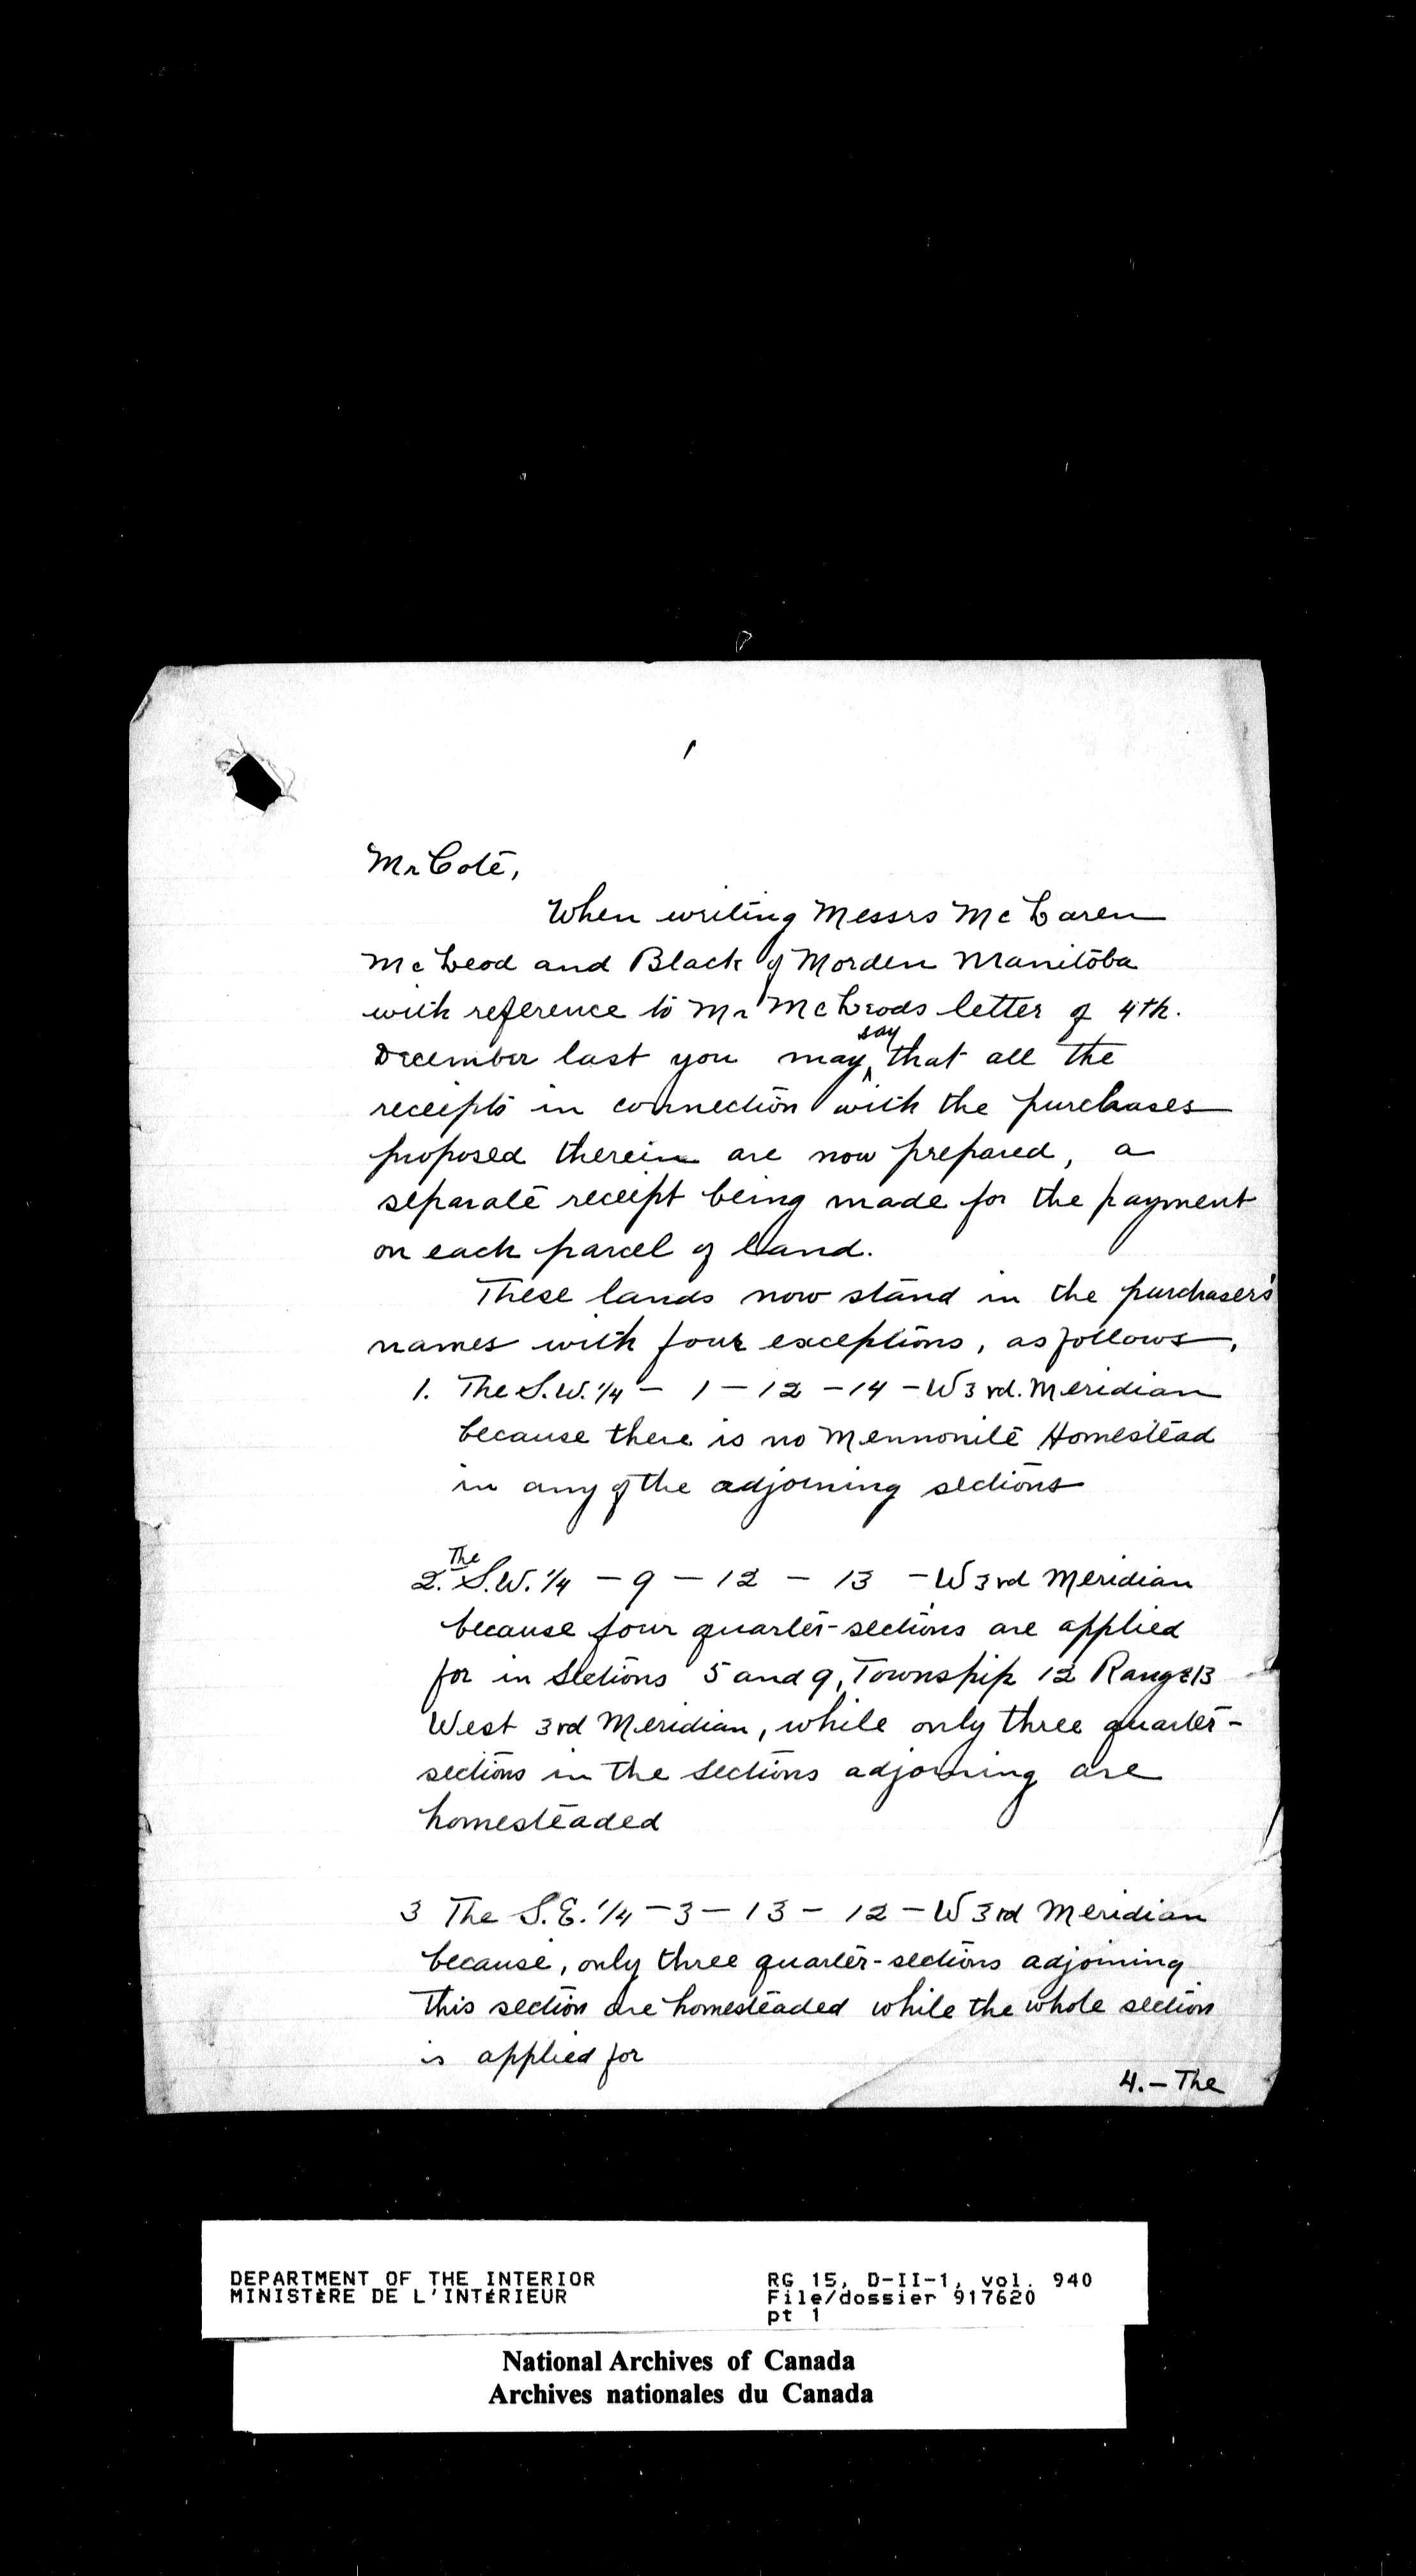 Mr Coté,
When writing Messrs McLaren
McLeod and Black of Morden Manitoba
with reference to Mr McLeods letter of 4th.
say
December last you may ^ that all the
receipts in connection with the purchases
proposed therein are now prepared, a
separate receipt being made for the payment
on each parcel of land.
These lands now stand in the purchasers'
names with four exceptions, as follows,
1. The S.W. 1/4 – 1 – 12 – 14 – W 3rd. Meridian
because there is no Mennonite Homestead
in any of the adjoining sections
The
2. S.W. 1/4 – 9 – 12 – 13 – W 3rd Meridian
because four quarter-sections are applied
for in Sections 5 and 9, Township 12 Range 13
West 3rd Meridian, while only three quarter-
sections in the sections adjoining are
homesteaded
3 The S.E. 1/4 – 3 – 13 – 12 – W 3rd Meridian
because, only three quarter-sections adjoining
this section are homesteaded while the whole section
is applied for
4. – The
DEPARTMENT OF THE INTERIOR
MINISTÈRE DE L'INTÉRIEUR
RG 15, D-II-1, vol. 940
File/dossier 917620
pt 1
National Archives of Canada
Archives nationales du Canada